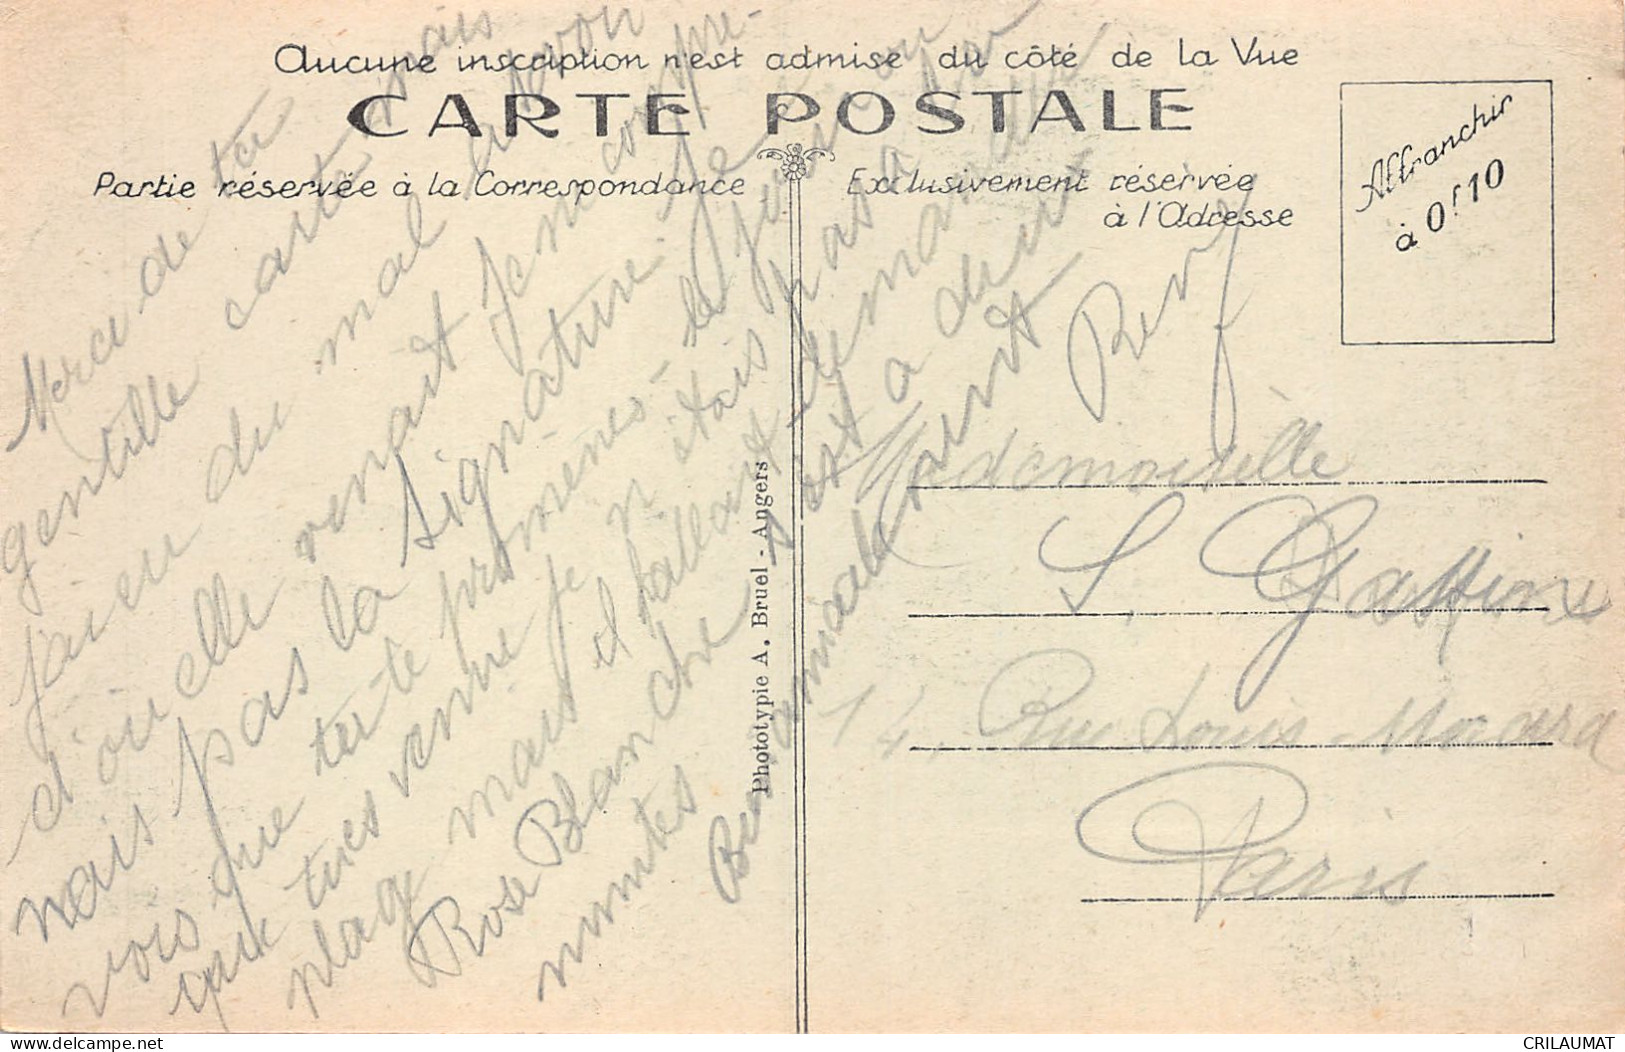 Aucune inscription n'est admise du côté de la Vue
CARTE POSTALE
Partie réservée à la Correspondance
Exclusivement réservée
à l'Adresse
Affranchir
à 0f10
Merci de ta
gentille carte mais
j'ai eu du mal à
d'où elle venait je
mais pas la signature. Je
vois que tu te promènes - le
que tu es venue je n'étais pas à la
plage mais il fallait demander
Rose Blanche c'est à
minutes
Bien amicalement
Phototypie A. Bruel - Angers
Mademoiselle
S. Gastine
14, Rue Louis
Paris
delcampe.net
CRILAUMAT